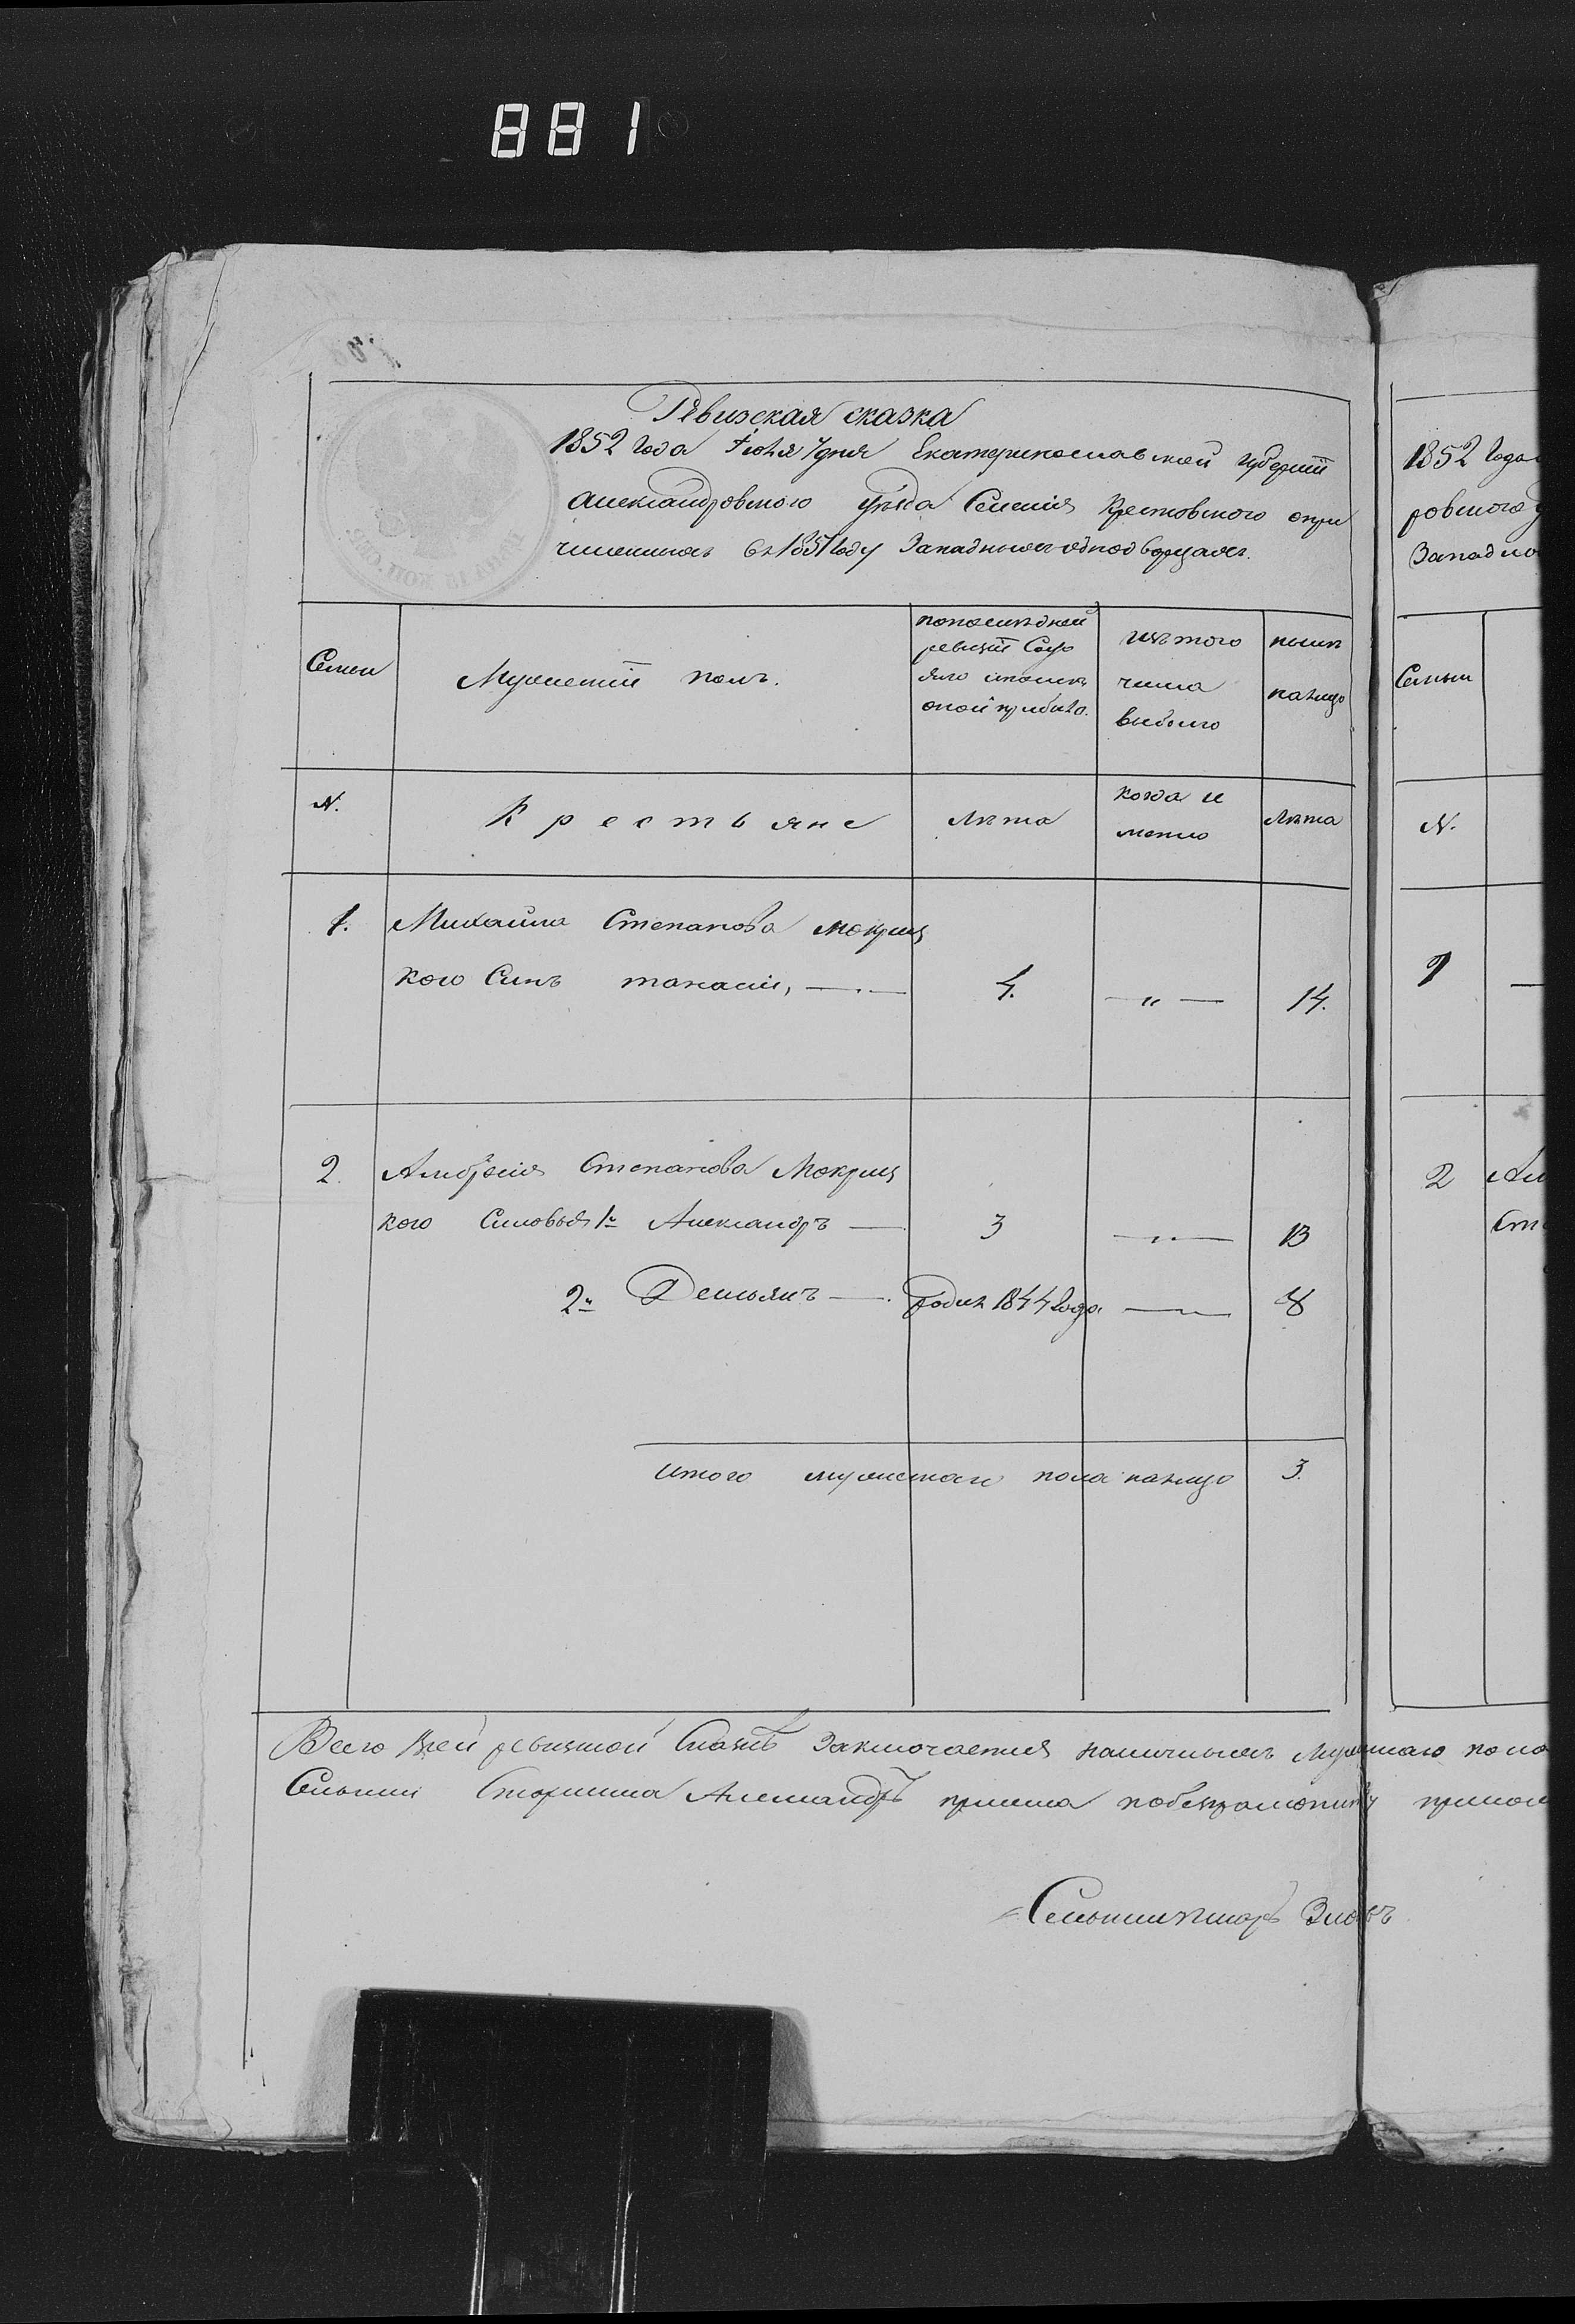 881
Ревизская сказка
1852 года Іюля 7 дня Екатеринославской губерніи
Александровского уѣзда Селенія Крестовского о при
численныхъ въ 1851 году Западныхъ однодворцахъ.
Семьи
Мужеский полъ.
по послѣдней
ревизіи Состо
яло и послѣ
оной прибыло.
Изъ того
числа
выбыло
нынѣ
налицо
N.
Крестьяне
Лѣта
когда и
менно
Лѣта
1.
Михайла Степанова Мокриц
кого Сынъ 
4.
14.
2.
Амброзія Степанова Мокриц
кого Сыновья 1й Александръ
3
13
2й Демьянъ
родил 1844 года
8
Итого мужеского пола налицо
3.
Всего в сей ревизской Сказкѣ Заключается наличныхъ Мужескаго пола
Сельский Старшина Александръ
Сельский писарь
1852 Года
ровского у
Западно
Семьи
N.
1
2
Ам
Сте